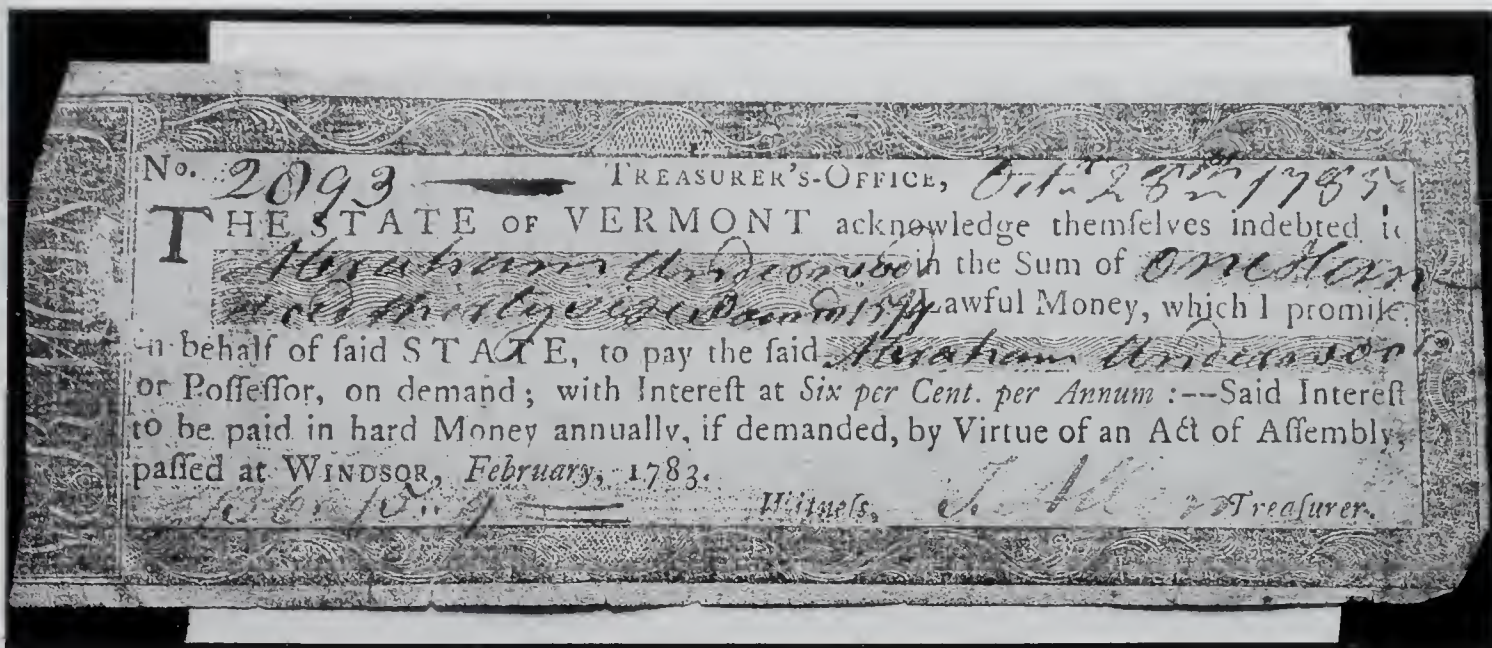 No. 2893 TREASURER'S-OFFICE, Octr 28th 1785
THE STATE OF VERMONT acknowledge themſelves indebted
Abraham Underwood in the Sum of One Hun
Lawful Money, which I promiſe
in behalf of ſaid STATE, to pay the ſaid Abraham Underwood
or Poſſeſſor, on demand; with Intereſt at Six per Cent. per Annum :--Said Intereſt
to be paid in hard Money annually, if demanded, by Virtue of an Act of Aſſembly,
paſſed at WINDSOR, February, 1783.
Witneſs, I. Allen Treaſurer.